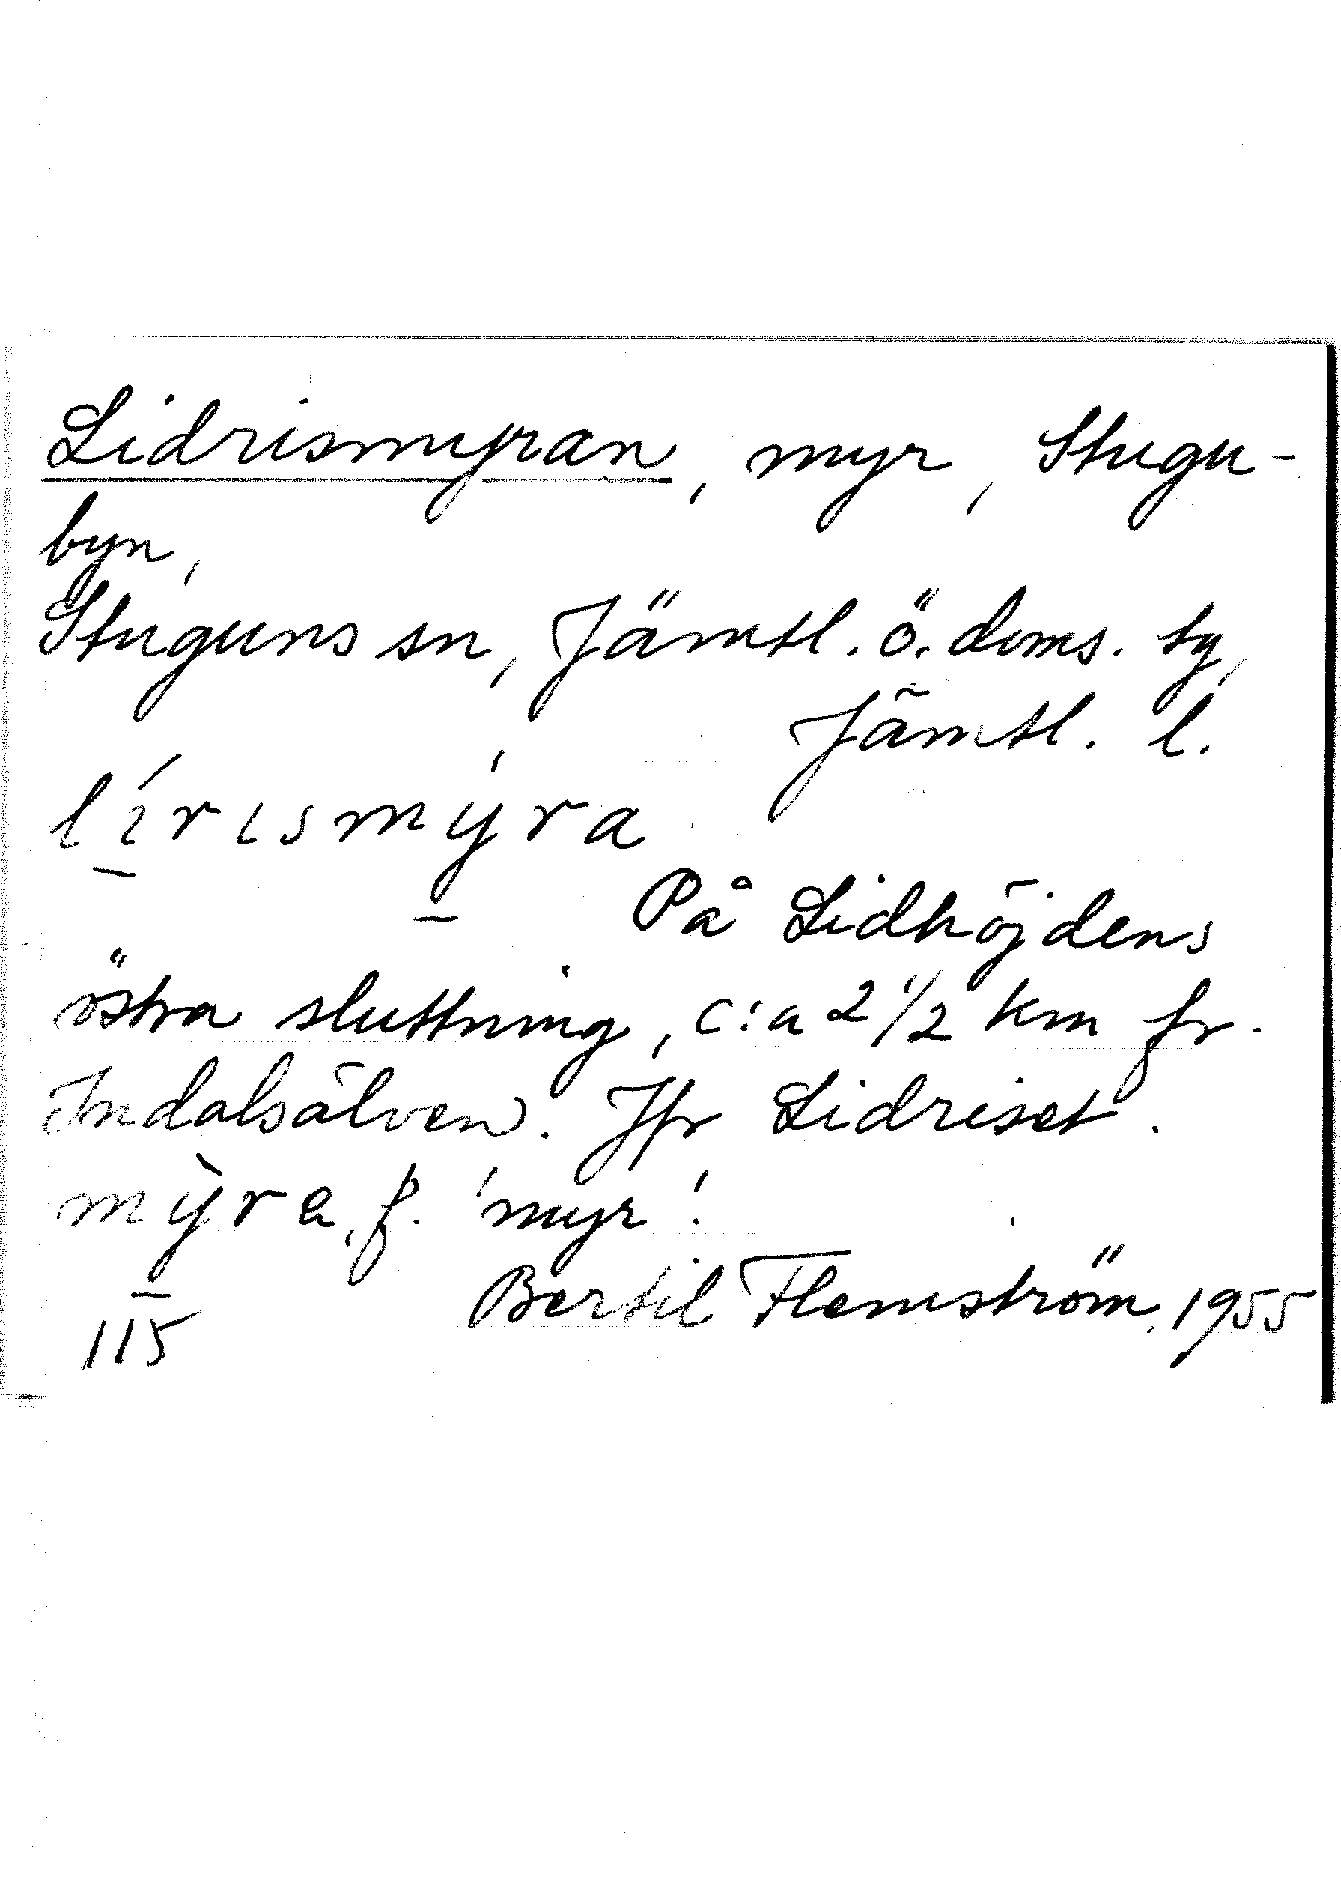 Lidrismyran, myr, Stugu-
byn,
Stuguns sn, Jämtl. ö. doms. sg,
Jämtl. l.
lírısmýra
På Lidhöjdens
östra sluttning, c:a 2 1/2 km fr.
Indalsälven. Jfr Lidriset.
mỳra, f. 'myr'.
Bertil Flemström, 1955
115